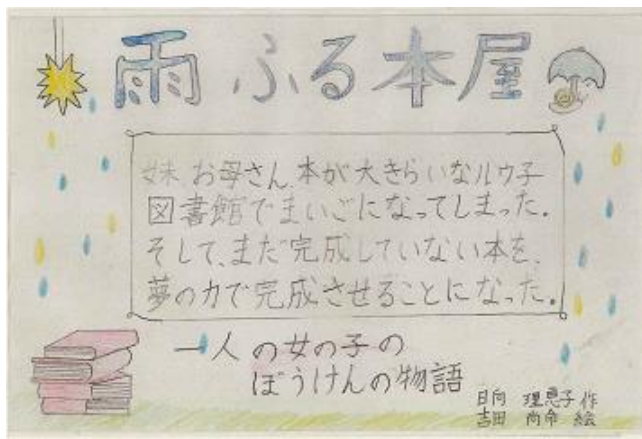 雨ふる本屋
妹、お母さん、本が大きらいなルウ子
図書館でまいごになってしまった。
そして、まだ完成していない本を、
夢の力で完成させることになった。
一人の女の子の
ぼうけんの物語
日向 理恵子 作
吉田 尚令 絵